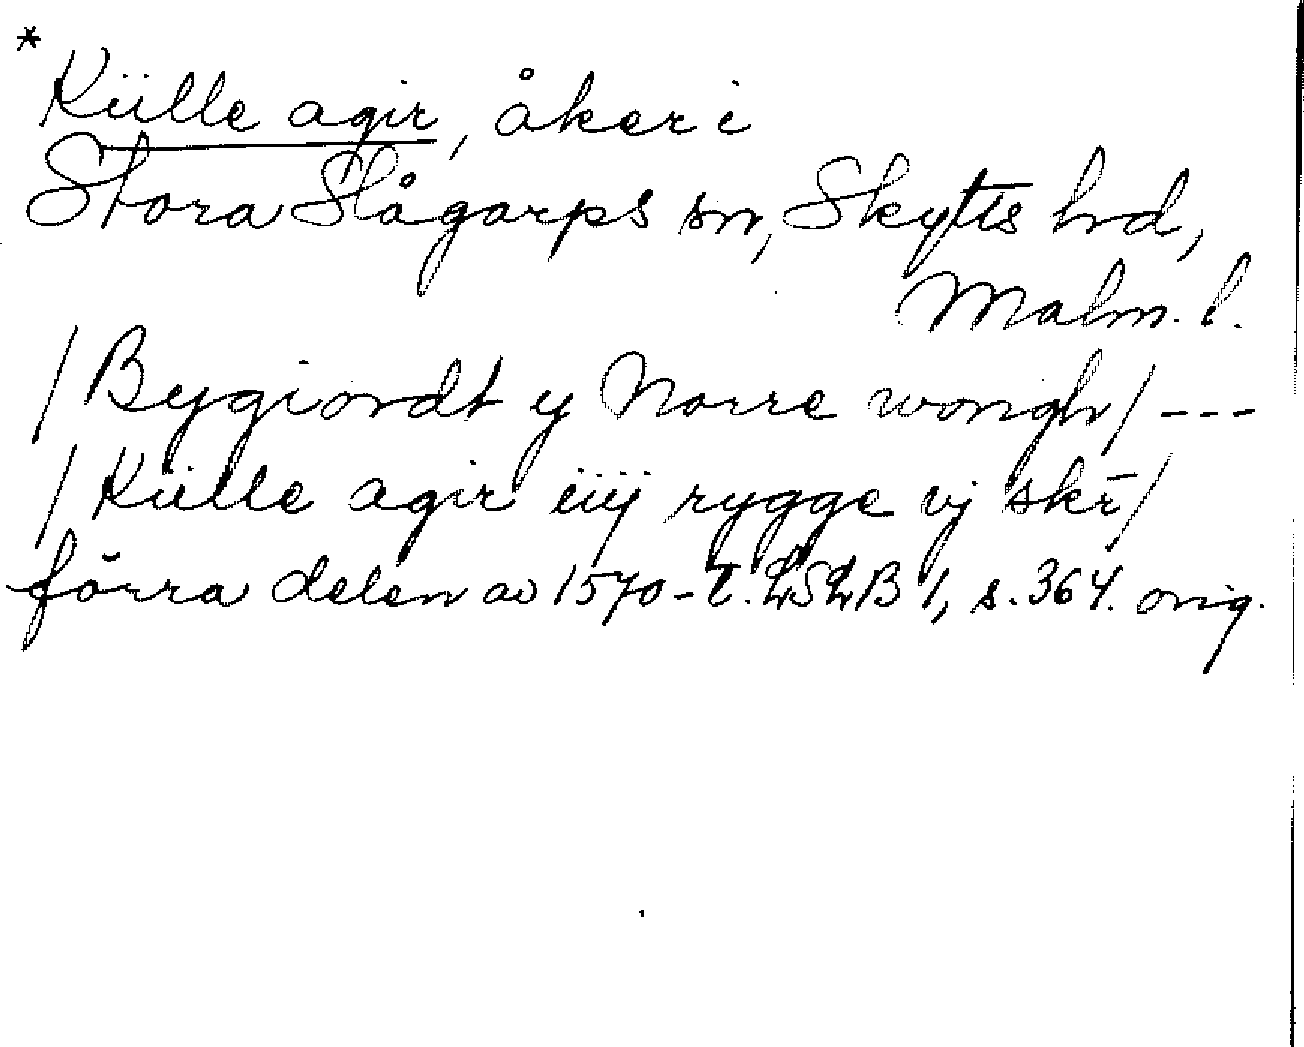 *
Külle agir, åker i
Stora Slågarps sn, Skytts hd,
Malm. l.
/Bygiordt y Norre wongh/ ---
/Külle agir iiij rygge vj skr̄/
förra delen av 1570-t. LSLB 1, s. 364. orig.